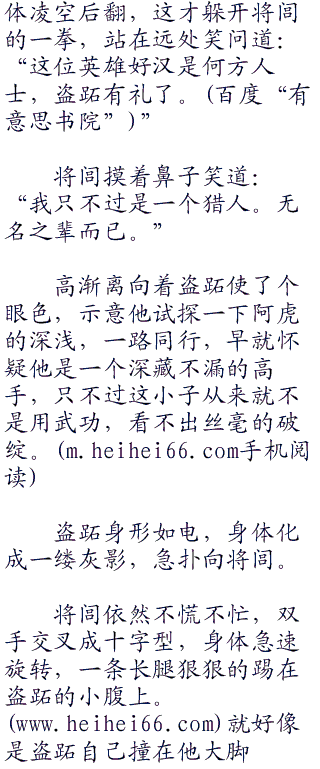 体凌空后翻，这才躲开将闾
的一拳，站在远处笑问道：
“这位英雄好汉是何方人
士，盗跖有礼了。(百度“有
意思书院”)”
　　将闾摸着鼻子笑道：
“我只不过是一个猎人。无
名之辈而已。”
　　高渐离向着盗跖使了个
眼色，示意他试探一下阿虎
的深浅，一路同行，早就怀
疑他是一个深藏不漏的高
手，只不过这小子从来就不
是用武功，看不出丝毫的破
绽。(m.heihei66.com手机阅
读)
　　盗跖身形如电，身体化
成一缕灰影，急扑向将闾。
　　将闾依然不慌不忙，双
手交叉成十字型，身体急速
旋转，一条长腿狠狠的踢在
盗跖的小腹上。
(www.heihei66.com)就好像
是盗跖自己撞在他大脚